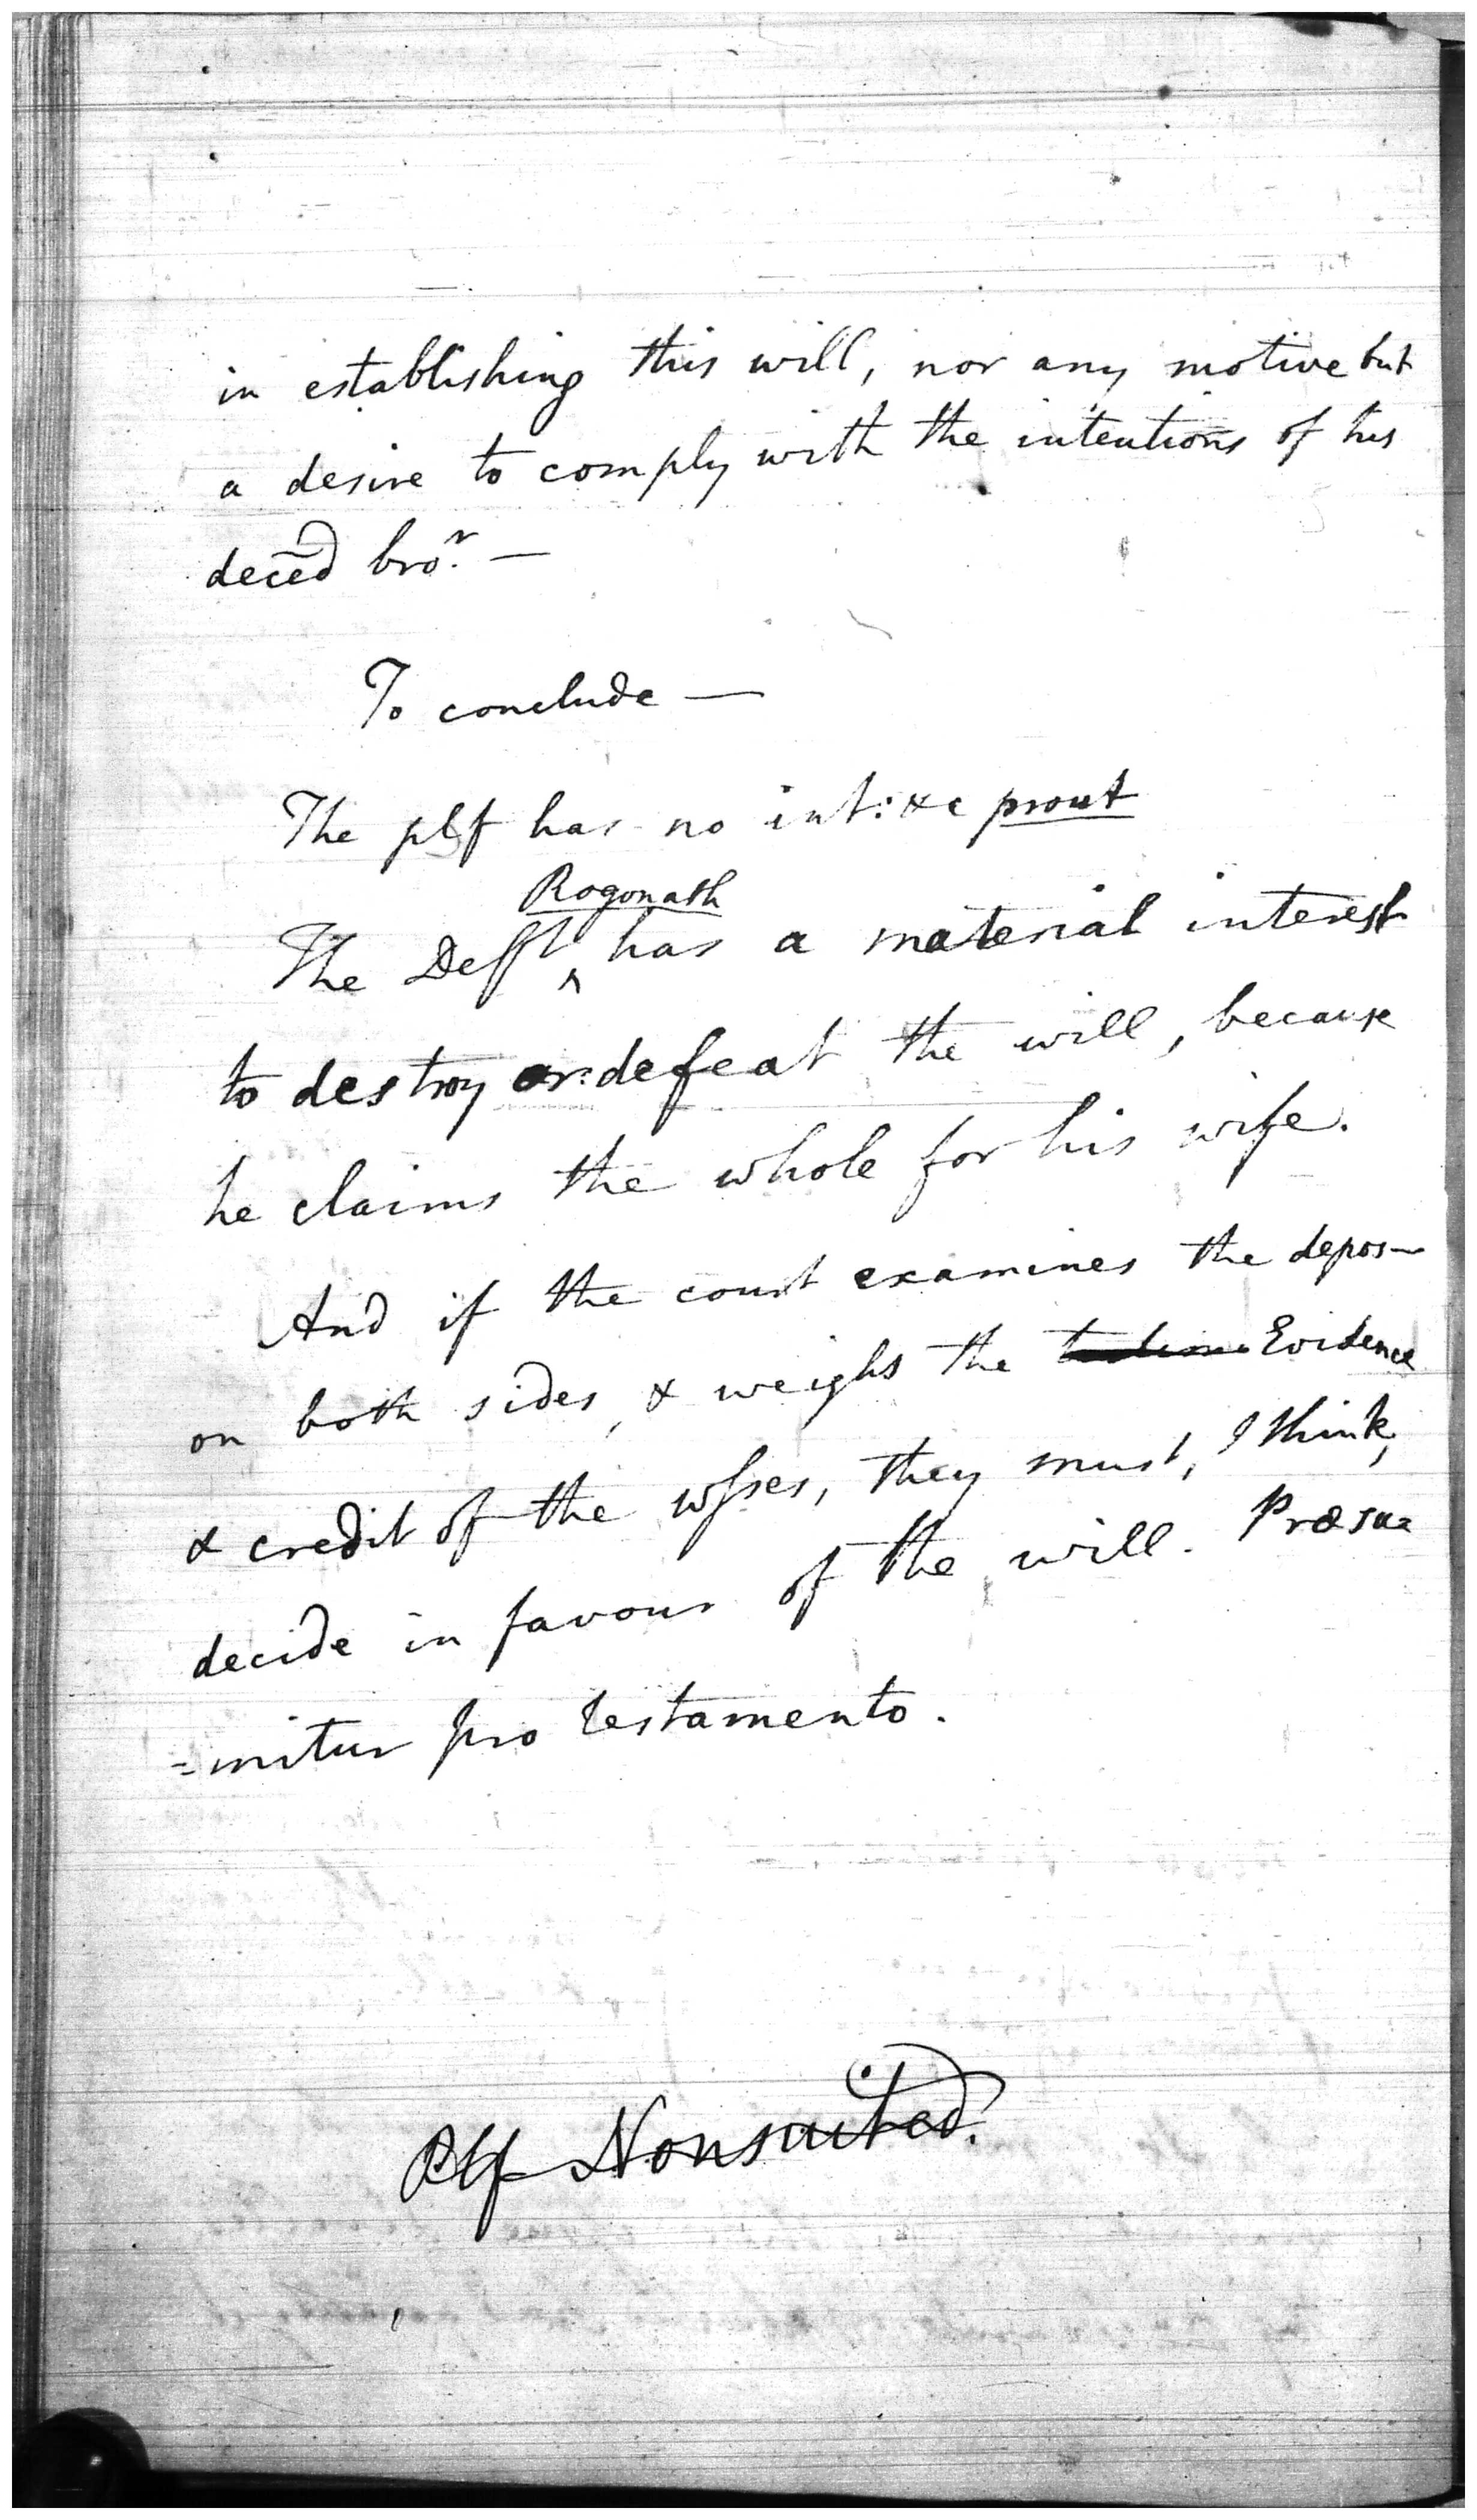 in establishing this will, nor any motive but
a desire to comply with the intentions of his
deced bror. —
To conclude —
The plf has no int: &c prout
Rogonath
The Defft ^ has a material interest
to destroy or defeat the will, because
he claims the whole for his wife.
And if the court examines the depos—
on both sides, & weighs the Evidence
& credit of the wsses, they must, I think,
decide in favour of the will. Præsu=
=mitur pro testamento.
Plf Nonsuited.